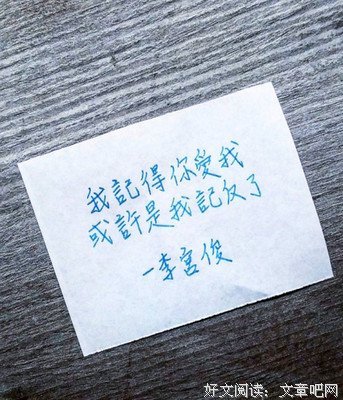 我記得你愛我
或許是我記反了
－李宮俊
好文阅读：文章吧网